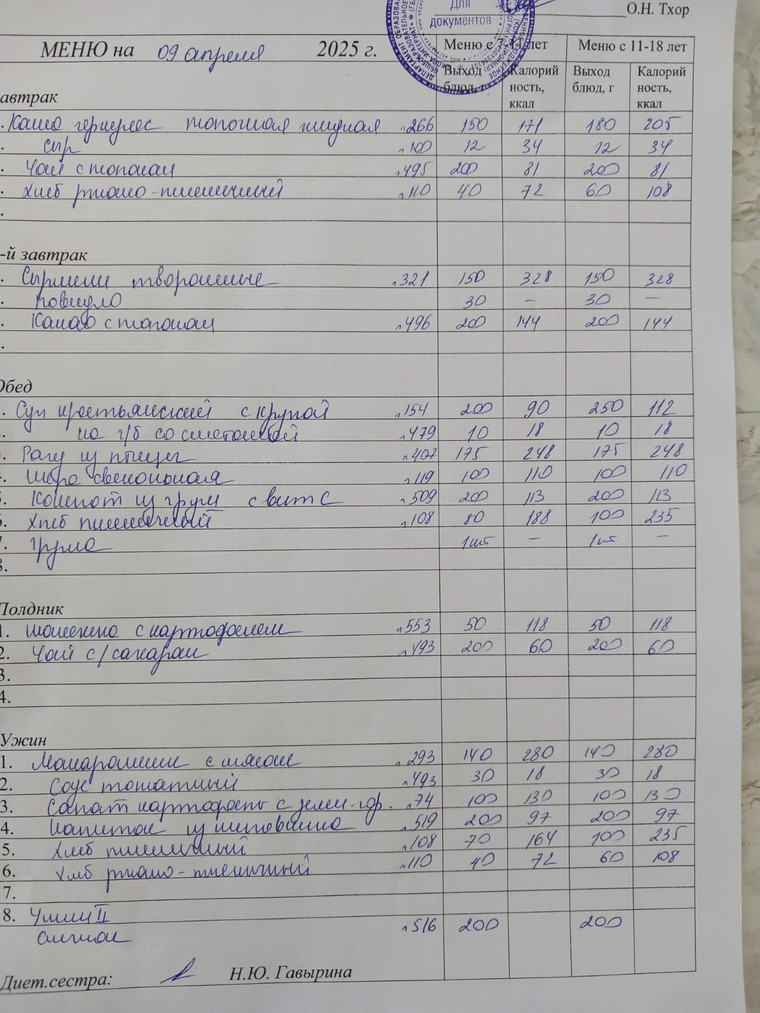 О.Н. Тхор
Для документов
МЕНЮ на 09 апреля 2025 г. Меню с 7- лет Меню с 11-18 лет
Выход блюд, г Калорий ность, ккал Выход блюд, г Калорий ность, ккал
автрак
Каша геркулес молочная жидная 266 150 171 180 205
сыр 100 12 34 12 34
Чай с молоком 495 200 81 200 81
Хлеб ржано-пшеничный 110 40 72 60 108
-й завтрак
Сырники творожные 321 150 328 150 328
повидло 30 - 30 -
Какао с молоком 496 200 144 200 144
Обед
Суп крестьянский с крупой 154 200 90 250 112
на г/б со сметаной 479 10 18 10 18
Рагу из птицы 407 175 248 175 248
икра свекольная 119 100 110 100 110
Компот из груш с вит С 509 200 113 200 113
Хлеб пшеничный 108 80 188 100 235
7. груша 1шт - 1шт -
8.
Полдник
1. с картофелем 553 50 118 50 118
2. Чай с/сахаром 493 200 60 200 60
3.
4.
Ужин
1. Макаронник с мясом 293 140 280 140 280
2. Соус томатный 493 30 18 30 18
3. Салат картофель с зелен. гор. 74 100 130 100 130
4. напиток из шиповника 519 200 97 200 97
5. Хлеб пшеничный 108 70 164 100 235
6. Хлеб ржано-пшеничный 110 40 72 60 108
7.
8. Ужин II
516 200 200
Диет.сестра: Н.Ю. Гавырина